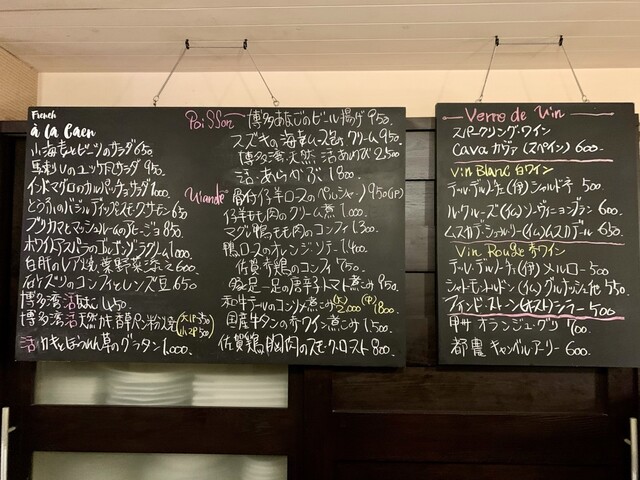 French
à la Caen
小海老とビーツのサラダ 650
馬刺しのユッケ風サラダ 950
インドマグロのカルパッチョサラダ 1,000
とうふのバジルディップ スモークサーモン 650
ブリカマとマッシュルームのアヒージョ 850
ホワイトアスパラのゴルゴンゾーラクリーム 1,000
白肝のレア焼、葉野菜添え 600
砂ズリのコンフィとレンズ豆 650
博多湾活だこ 1,450
博多湾活天然かき香草パン粉焼
活カキとほうれん草のグラタン 1,000
Poisson
博多あなごのビール揚げ 950
スズキの海老ムース包み クリーム 950
博多湾天然活あわび 2,500
活あらかぶ 1,800
Viande
骨付仔羊ロースのペルシャード 950 (1P)
仔羊もも肉のクリーム煮 1,000
マグレ鴨もも肉のコンフィ 1,300
鴨ロースのオレンジソテー 1,400
佐賀鶏のコンフィ 750
豚足一足の唐辛子トマト煮込み 950
和牛テールのコンソメ煮こみ (大) 2,000 (中) 1,800
国産牛タンの赤ワイン煮こみ 1,500
佐賀鶏胸肉のスモークロースト 800
Verre de Vin
スパークリング・ワイン
Cava カヴァ (スペイン) 600
Vin Blanc 白ワイン
テール・デル・ノーチェ (伊) シャルドネ 500
ル・クルーズ (仏) ソーヴィニヨンブラン 600
ムスカデ・シュール・リー (仏) ムスカデ 650
Vin Rouge 赤ワイン
テール・デル・ノーチェ (伊) メルロー 500
シャトーモン・ルドン (仏) グルナッシュ他 550
ファインド・ストーン (オースト) シラー 500
甲州 オランジュ・グリ 700
都農 キャンベル・アーリー 600